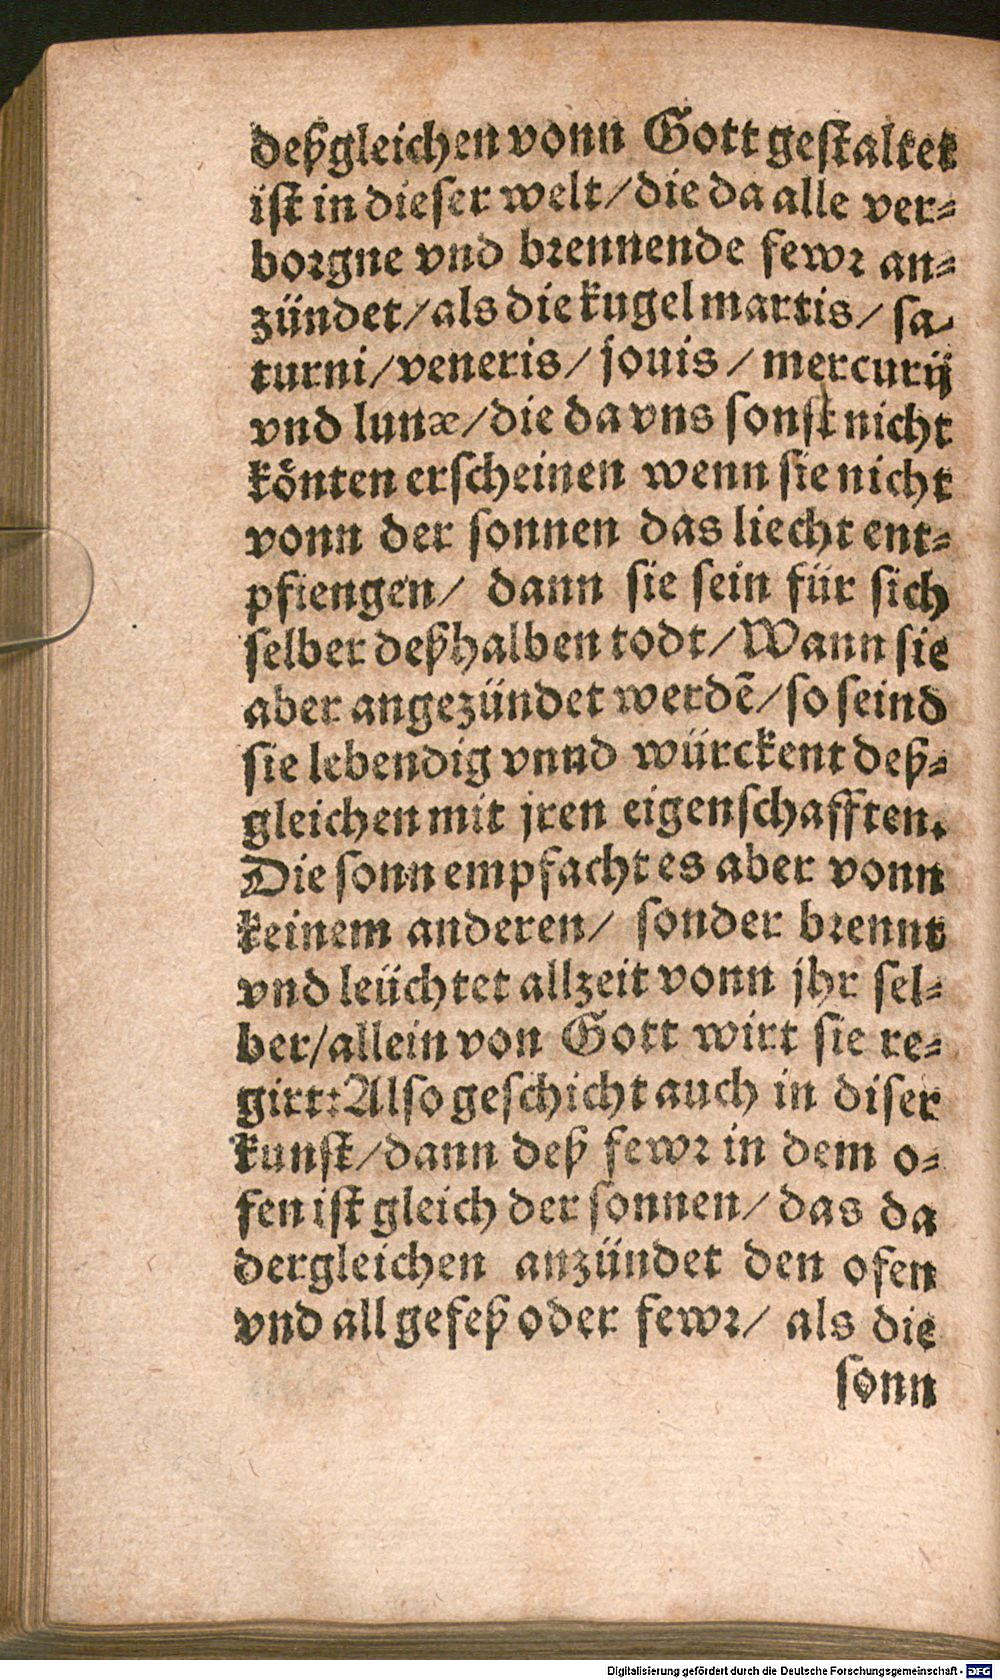 deßgleichen vonn Gott gestaltet
ist in dieser welt/die da alle ver-
borgne vnd brennende fewr an-
zündet/als die kugel martis/ sa-
turni/veneris/ jouis / mercurij
vnd lunæ/die da vns sonst nicht
koͤnten erscheinen wenn sie nicht
vonn der sonnen das liecht ent-
pfiengen/ dann sie sein für sich
selber deßhalben todt/Wann sie
aber angezündet werdē/so seind
sie lebendig vnnd würckent deß-
gleichen mit jren eigenschafften.
Die sonn empfacht es aber vonn
keinem anderen/ sonder brennt
vnd leüchtet allzeit vonn jhr sel-
ber/allein von Gott wirt sie re-
girt: Also geschicht auch in diser
kunst/dann deß fewr in dem o-
fen ist gleich der sonnen/ das da
dergleichen anzündet den ofen
vnd all gefeß oder fewr/ als die
sonn
Digitalisierung gefördert durch die Deutsche Forschungsgemeinschaft - DFG